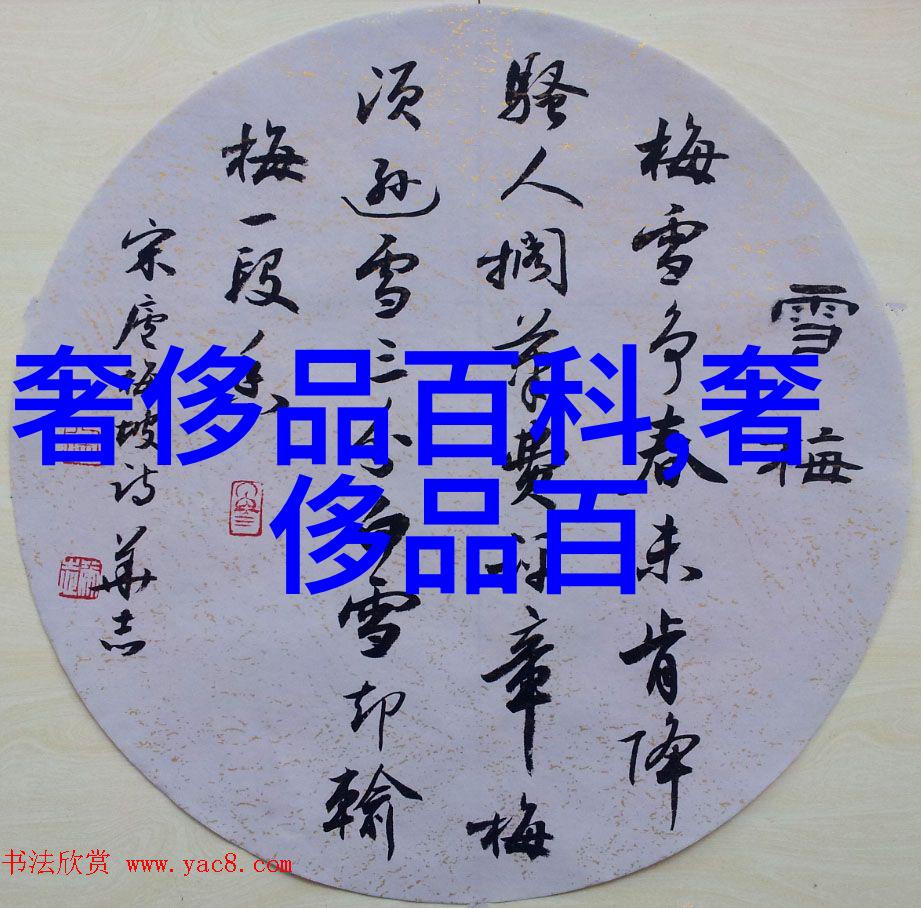 雪梅
梅雪争春未肯降
骚人搁笔费评章梅
须逊雪三分白雪却输
梅一段香
宋卢梅坡诗 华志
奢侈品百科,奢
侈品百
书法欣赏 www.yac8.com